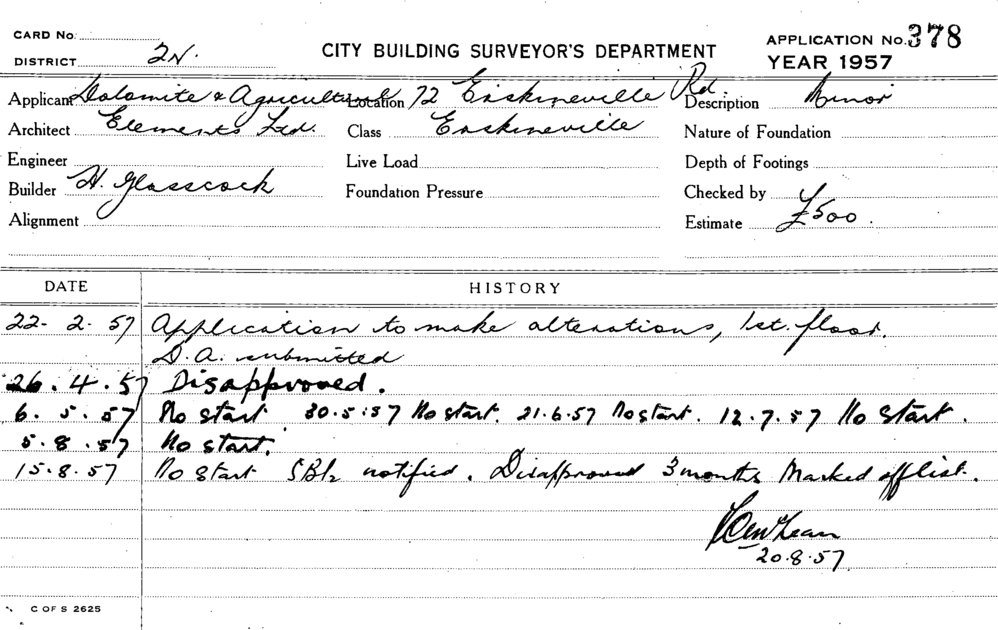 CARD No.
DISTRICT 2N.
CITY BUILDING SURVEYOR'S DEPARTMENT
APPLICATION No. 378
YEAR 1957
Applicant Dolomite & Agricultural Location 72 Erskineville Rd. Description Minor
Architect Elements Ltd. Class Erskineville Nature of Foundation
Engineer Live Load Depth of Footings
Builder H. Glasscock Foundation Pressure Checked by
Alignment Estimate £500.
DATE HISTORY
22-2-57 Application to make alterations, 1st. floor.
D.A. submitted
26.4.57 Disapproved.
6.5.57 No start 30.5.57 No start. 21.6.57 No start. 12.7.57 No start.
5.8.57 No start.
15.8.57 No start notified. Disapproved 3 months Marked off list.
20.8.57
C OF S 2625